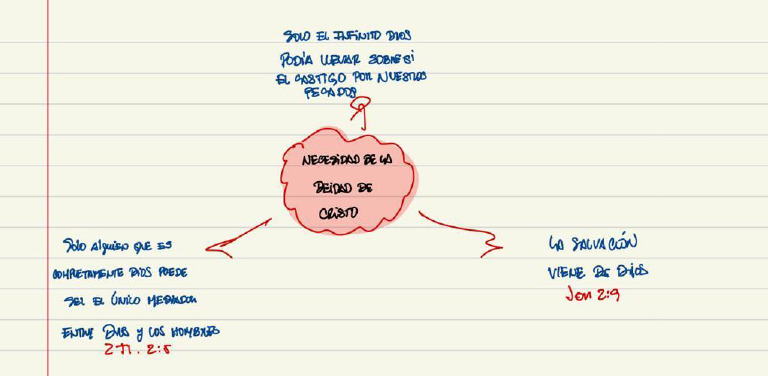 SOLO EL INFINITO DIOS
PODÍA LLEVAR SOBRE SI
EL CASTIGO POR NUESTROS
PECADOS
NECESIDAD DE LA
DEIDAD DE
CRISTO
Solo alguien que es
COMPLETAMENTE DIOS PUEDE
SER EL ÚNICO MEDIADOR
ENTRE DIOS y LOS HOMBRES
2:5
LA SALVACIÓN
VIENE DE DIOS
Jon 2:9